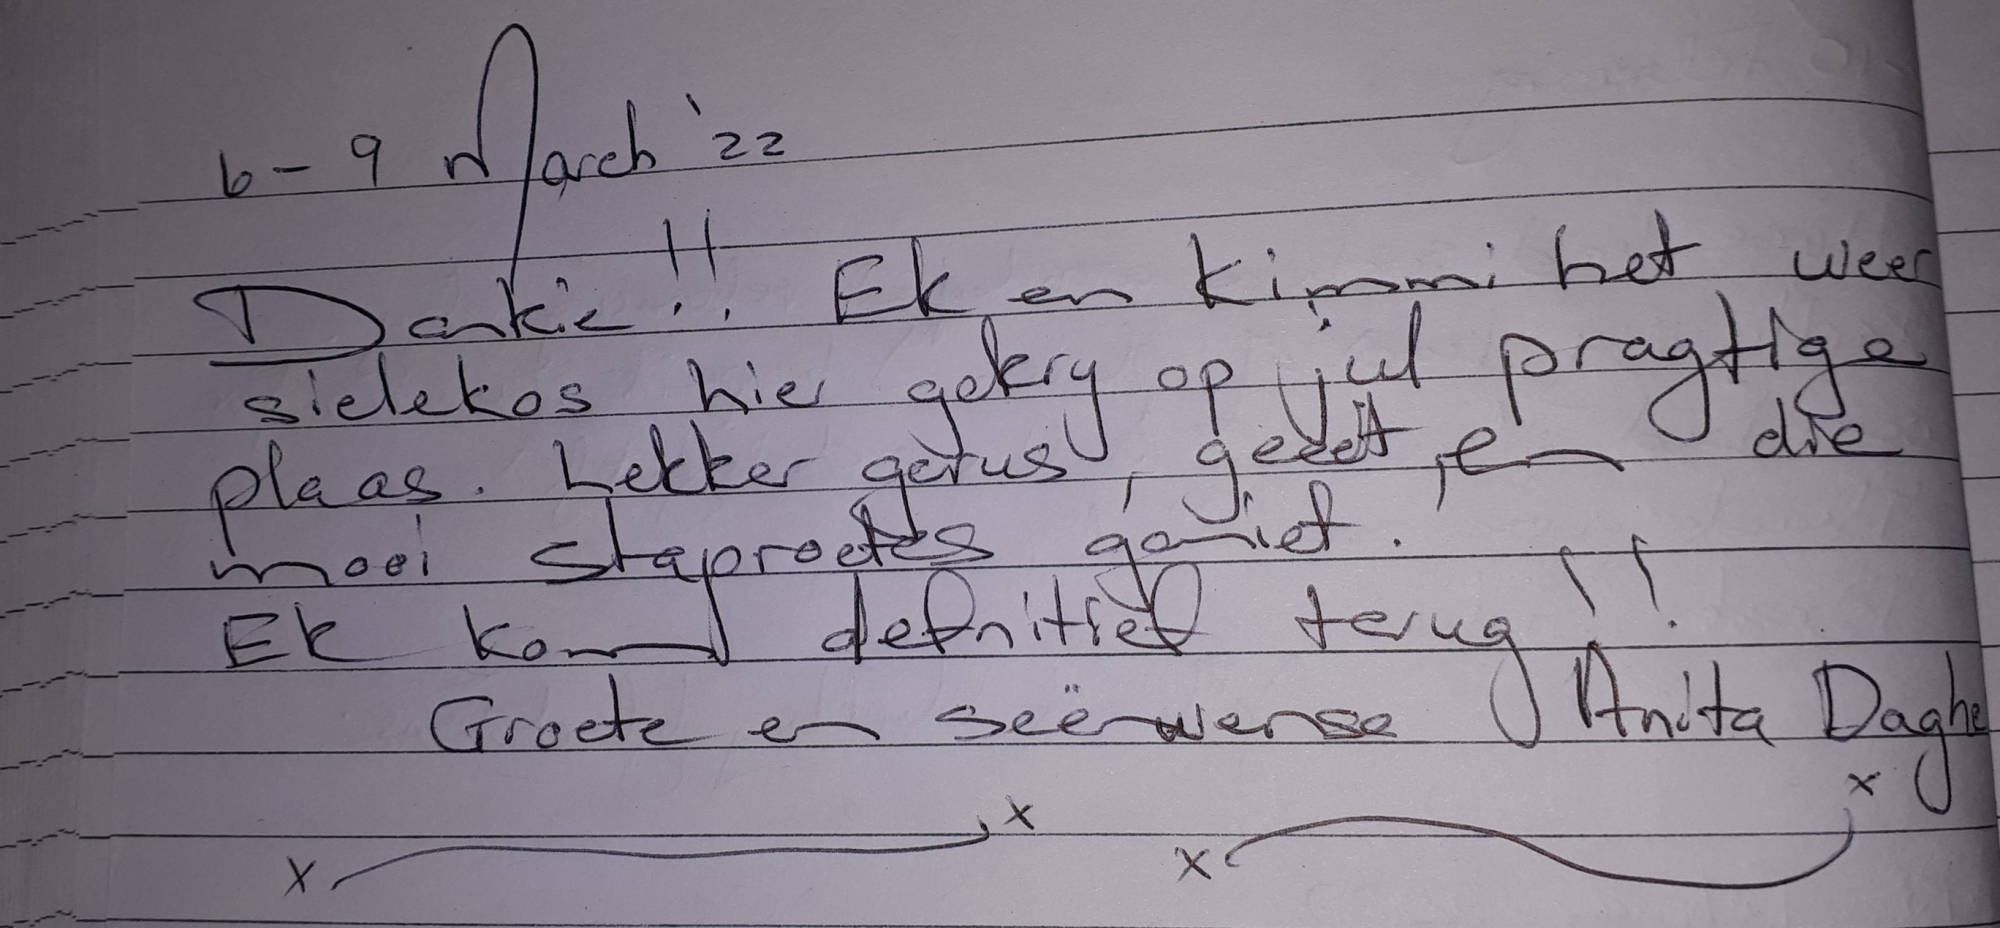 6-9 March '22
Dankie!! Ek en Kimmi het weer
sielekos hier gekry op jul pragtige
plaas. Lekker gerus, geeet, en die
mooi staproetes geniet.
Ek kom definitief terug!!
Groete en seënwense Anita Daghe
x x x x